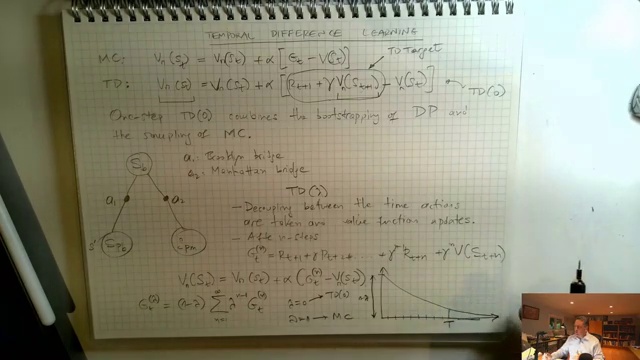 TEMPORAL DIFFERENCE LEARNING
MC: Vπ(St) = Vπ(St) + α [Gt - V(St)]
TD Target
TD: Vπ(St) = Vπ(St) + α [Rt+1 + γVπ(St+1) - Vπ(St)]
TD(0)
One-step TD(0) combines the bootstrapping of DP and
the sampling of MC.
S0
a1: Brooklyn bridge
a2: Manhattan bridge
a1
a2
TD(λ)
- Decoupling between the time actions
are taken and value function updates.
- After n-steps
s'
Gt(n) = Rt+1 + γ Rt+2 + γ^n V(St+n)
Vπ(St) = Vπ(St) + α (Gt(n) - Vπ(St))
Gt(λ) = (1-λ) Σ λ^n-1 Gt(n)
n=1
λ=0 → TD(0)
λ=1 → MC
T